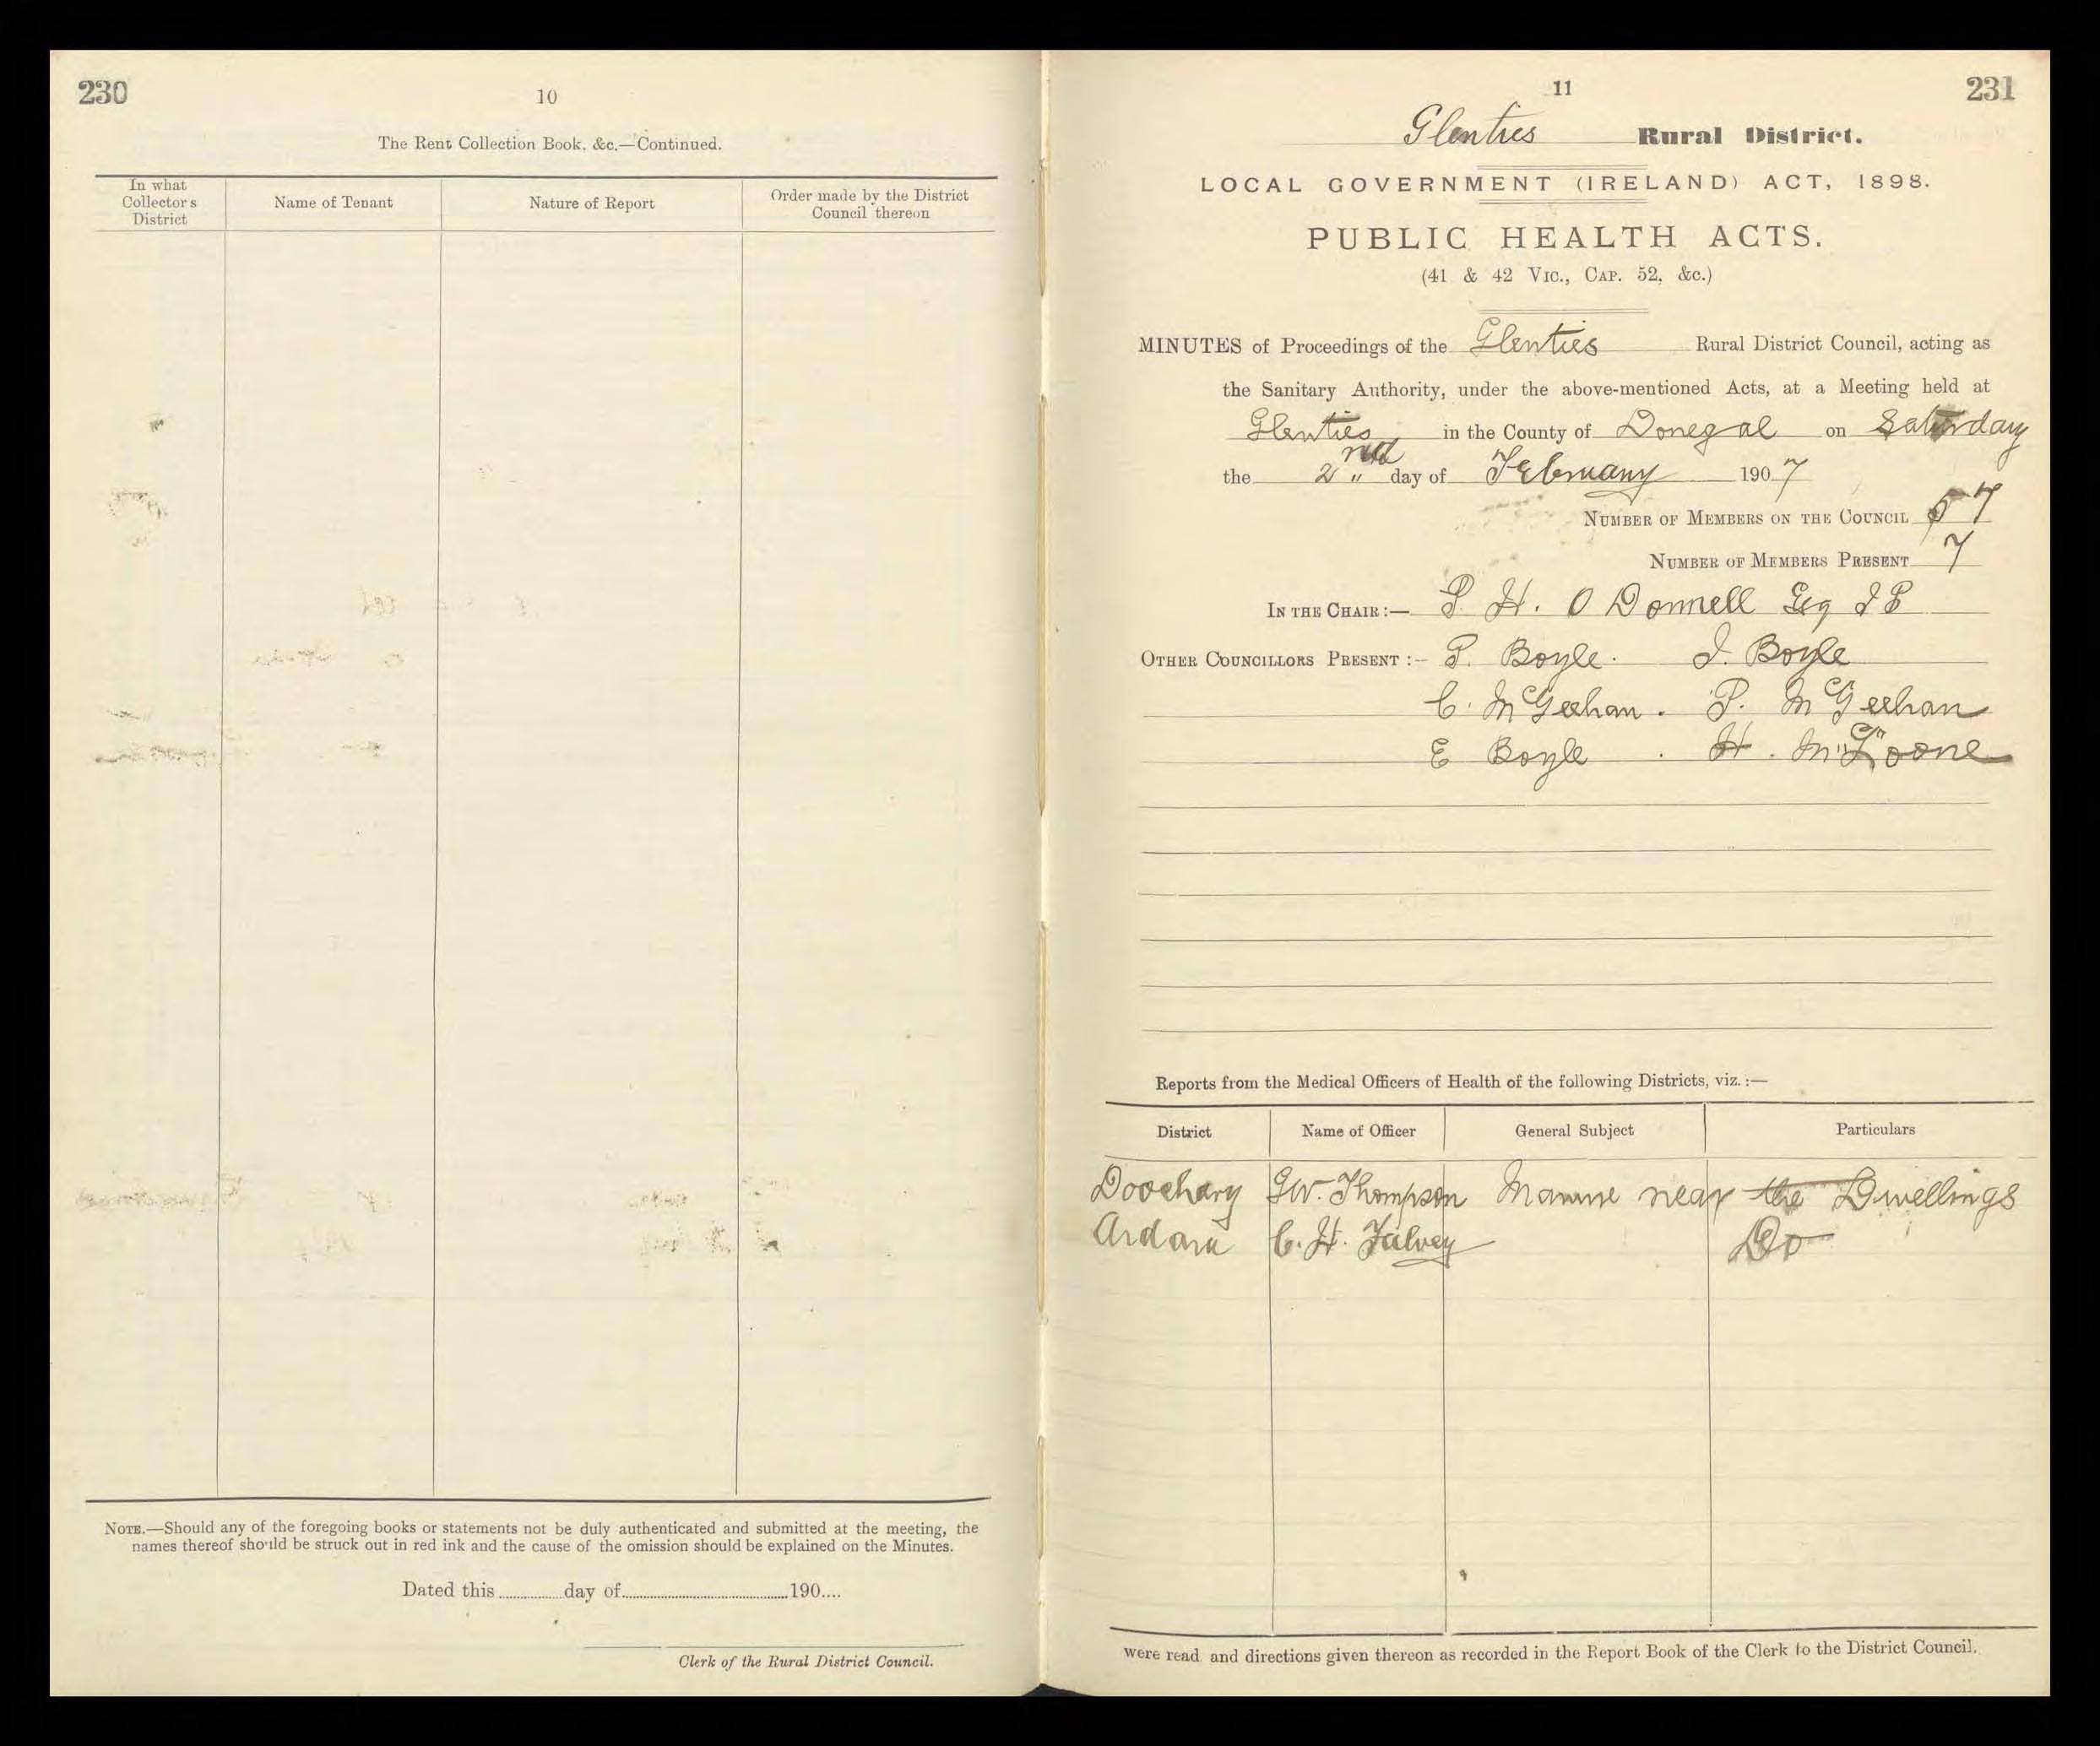 230
10
The Rent Collection Book, &c.—Continued.
In what Collector's District
Name of Tenant
Nature of Report
Order made by the District Council thereon
NOTE.—Should any of the foregoing books or statements not be duly authenticated and submitted at the meeting, the
names thereof should be struck out in red ink and the cause of the omission should be explained on the Minutes.
Dated this ............ day of ............ 190....
Clerk of the Rural District Council.
11
231
Glenties Rural District.
LOCAL GOVERNMENT (IRELAND) ACT, 1898.
PUBLIC HEALTH ACTS.
(41 & 42 VIC., CAP. 52, &c.)
MINUTES of Proceedings of the Glenties Rural District Council, acting as
the Sanitary Authority, under the above-mentioned Acts, at a Meeting held at
Glenties in the County of Donegal on Saturday
the 2nd day of February 1907
NUMBER OF MEMBERS ON THE COUNCIL 57
NUMBER OF MEMBERS PRESENT 7
IN THE CHAIR :— P. H. O Donnell Esq J P
OTHER COUNCILLORS PRESENT :— P. Boyle. J. Boyle
C. McGeehan. P. McGeehan
E Boyle. H. McLoone
Reports from the Medical Officers of Health of the following Districts, viz. :—
District
Name of Officer
General Subject
Particulars
Doochary G.W. Thompson Manure near the Dwellings
Ardara C. H. Falvey Do
were read and directions given thereon as recorded in the Report Book of the Clerk to the District Council.